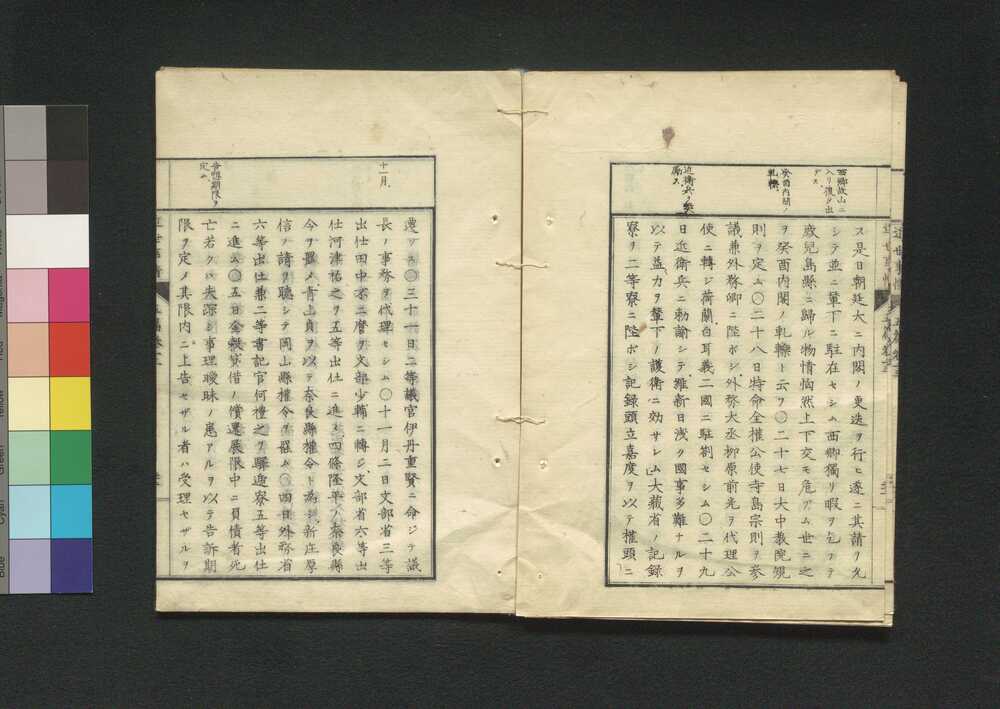 西郷故山ニ
入リ復タ出
デズ
癸酉内閣ノ
軋轢
近衛兵ヲ
ス是日朝廷大ニ内閣ノ更迭ヲ行ヒ遂ニ其請ヲ允
シテ並ニ輦下ニ駐在セシム西郷獨リ暇ヲ乞ヲテ
鹿兒島縣ニ歸ル物情恟然上下交モ危アム世ニ之
ヲ癸酉内閣ノ軋轢ト云フ〇二十七日大中教院規
則ヲ定ム〇二十八日特命全權公使寺島宗則ヲ參
議兼外務卿ニ陞ボシ外務大丞柳原前光ヲ代理公
使ニ轉ジ荷蘭白耳義二國ニ駐劄セシム〇二十九
日近衛兵ニ勅諭シテ維新日浅ク國事多難ナルヲ
以テ益力ヲ輦下ノ護衛ニ効サレム大藏省ノ記録
寮ヲ二等寮ニ陞ボシ記録頭立嘉度ヲ以テ權頭ニ
十一月
告訴期限ヲ
定ム
遷ツス〇三十一日二等議官伊丹重賢ニ命ジテ議
長ノ事務ヲ代理セシム〇十一月二日文部省三等
出仕田中不二麿ヲ文部少輔ニ轉ジ文部省六等出
仕河津祐之ヲ五等出仕ニ進メ四條隆平ノ奈良縣
令ヲ罷メ青上貞ヲ以テ奈良縣權令ト為シ新庄厚
信ノ請ヲ聽シテ岡山縣權令ヲ罷ム〇四日外務省
六等出仕兼二等書記官何禮之ヲ驛遞寮五等出仕
ニ進ム〇五日金穀貸借ノ償還展限中ニ負債者死
亡若クハ失踪シ事理曖昧ノ患アルヲ以テ告訴期
限ヲ定メ其限内ニ上告セザル者ハ受理セザルヲ